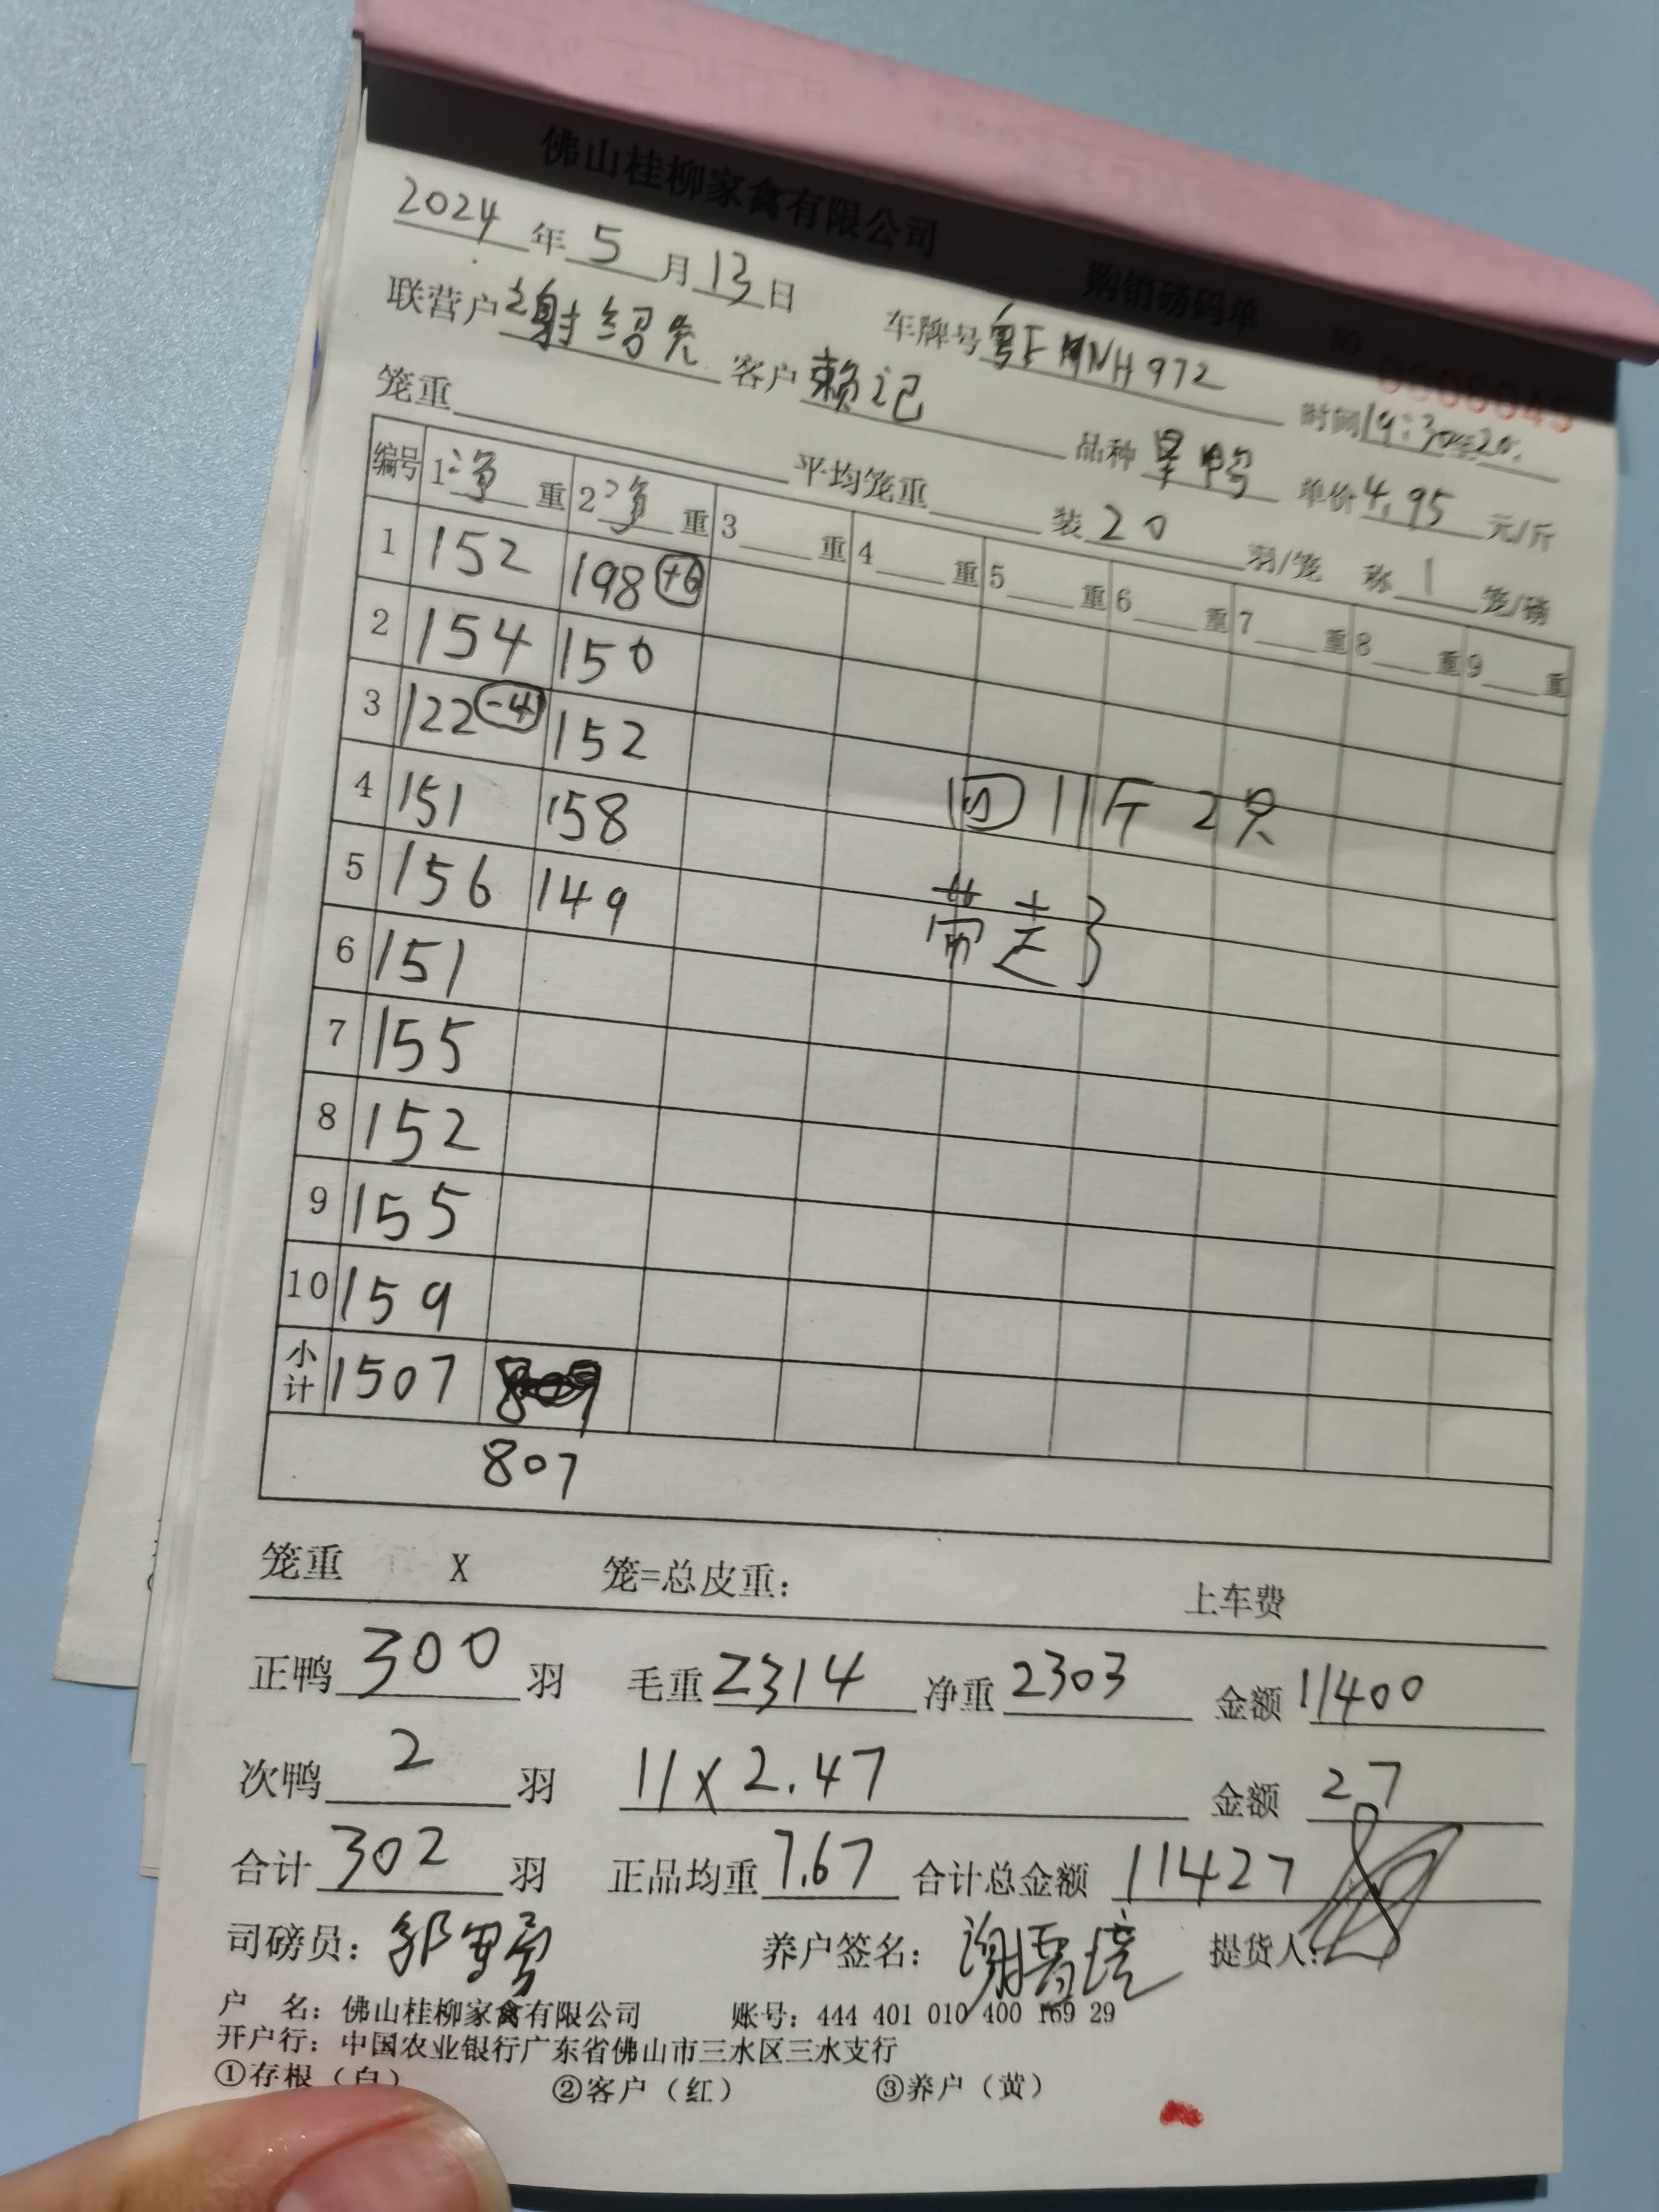 佛山桂柳家禽有限公司 购销磅码单 NO 0008045
2024年5月13日 车牌号粤FMNH972 时间19:30至20.
联营户谢绍先 客户赖记 品种 鸭 单价4.95元/斤
笼重 平均笼重 装20羽/笼 称1笼/磅
编号 1净重 2净重 3重 4重 5重 6重 7重 8重 9重
1 152 198 +6
2 154 150
3 122 -4 152
4 151 158 回11斤2只
5 156 149 带走了
6 151
7 155
8 152
9 155
10 159
小计 1507
807
笼重 X 笼=总皮重: 上车费
正鸭300羽 毛重2314 净重2303 金额11400
次鸭2羽 11x2.47 金额27
合计302羽 正品均重7.67 合计总金额11427
司磅员: 养户签名: 提货人:
户 名: 佛山桂柳家禽有限公司 账号: 444 401 010 400 169 29
开户行: 中国农业银行广东省佛山市三水区三水支行
①存根(白) ②客户(红) ③养户(黄)